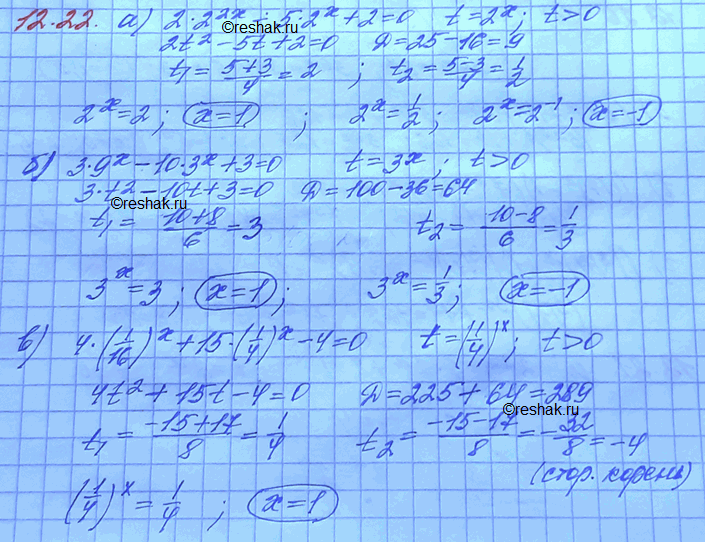 12.22. а) 2·2²ˣ - 5·2ˣ+2=0 t=2ˣ; t>0
©reshak.ru
2t²-5t+2=0 D=25-16=9
t₁=(5+3)/4=2 ; t₂=(5-3)/4=1/2
2ˣ=2; x=1 ; 2ˣ=1/2; 2ˣ=2⁻¹; x=-1
б) 3·9ˣ-10·3ˣ+3=0 t=3ˣ; t>0
3·t²-10t+3=0 D=100-36=64
©reshak.ru
t₁=(10+8)/6=3 t₂=(10-8)/6=1/3
3ˣ=3; x=1; 3ˣ=1/3; x=-1
в) 4·(1/16)ˣ+15·(1/4)ˣ-4=0 t=(1/4)ˣ; t>0
4t²+15t-4=0 D=225+64=289
©reshak.ru
t₁=(-15+17)/8=1/4 t₂=(-15-17)/8=-32/8=-4
(стор. корень)
(1/4)ˣ=1/4 ; x=1